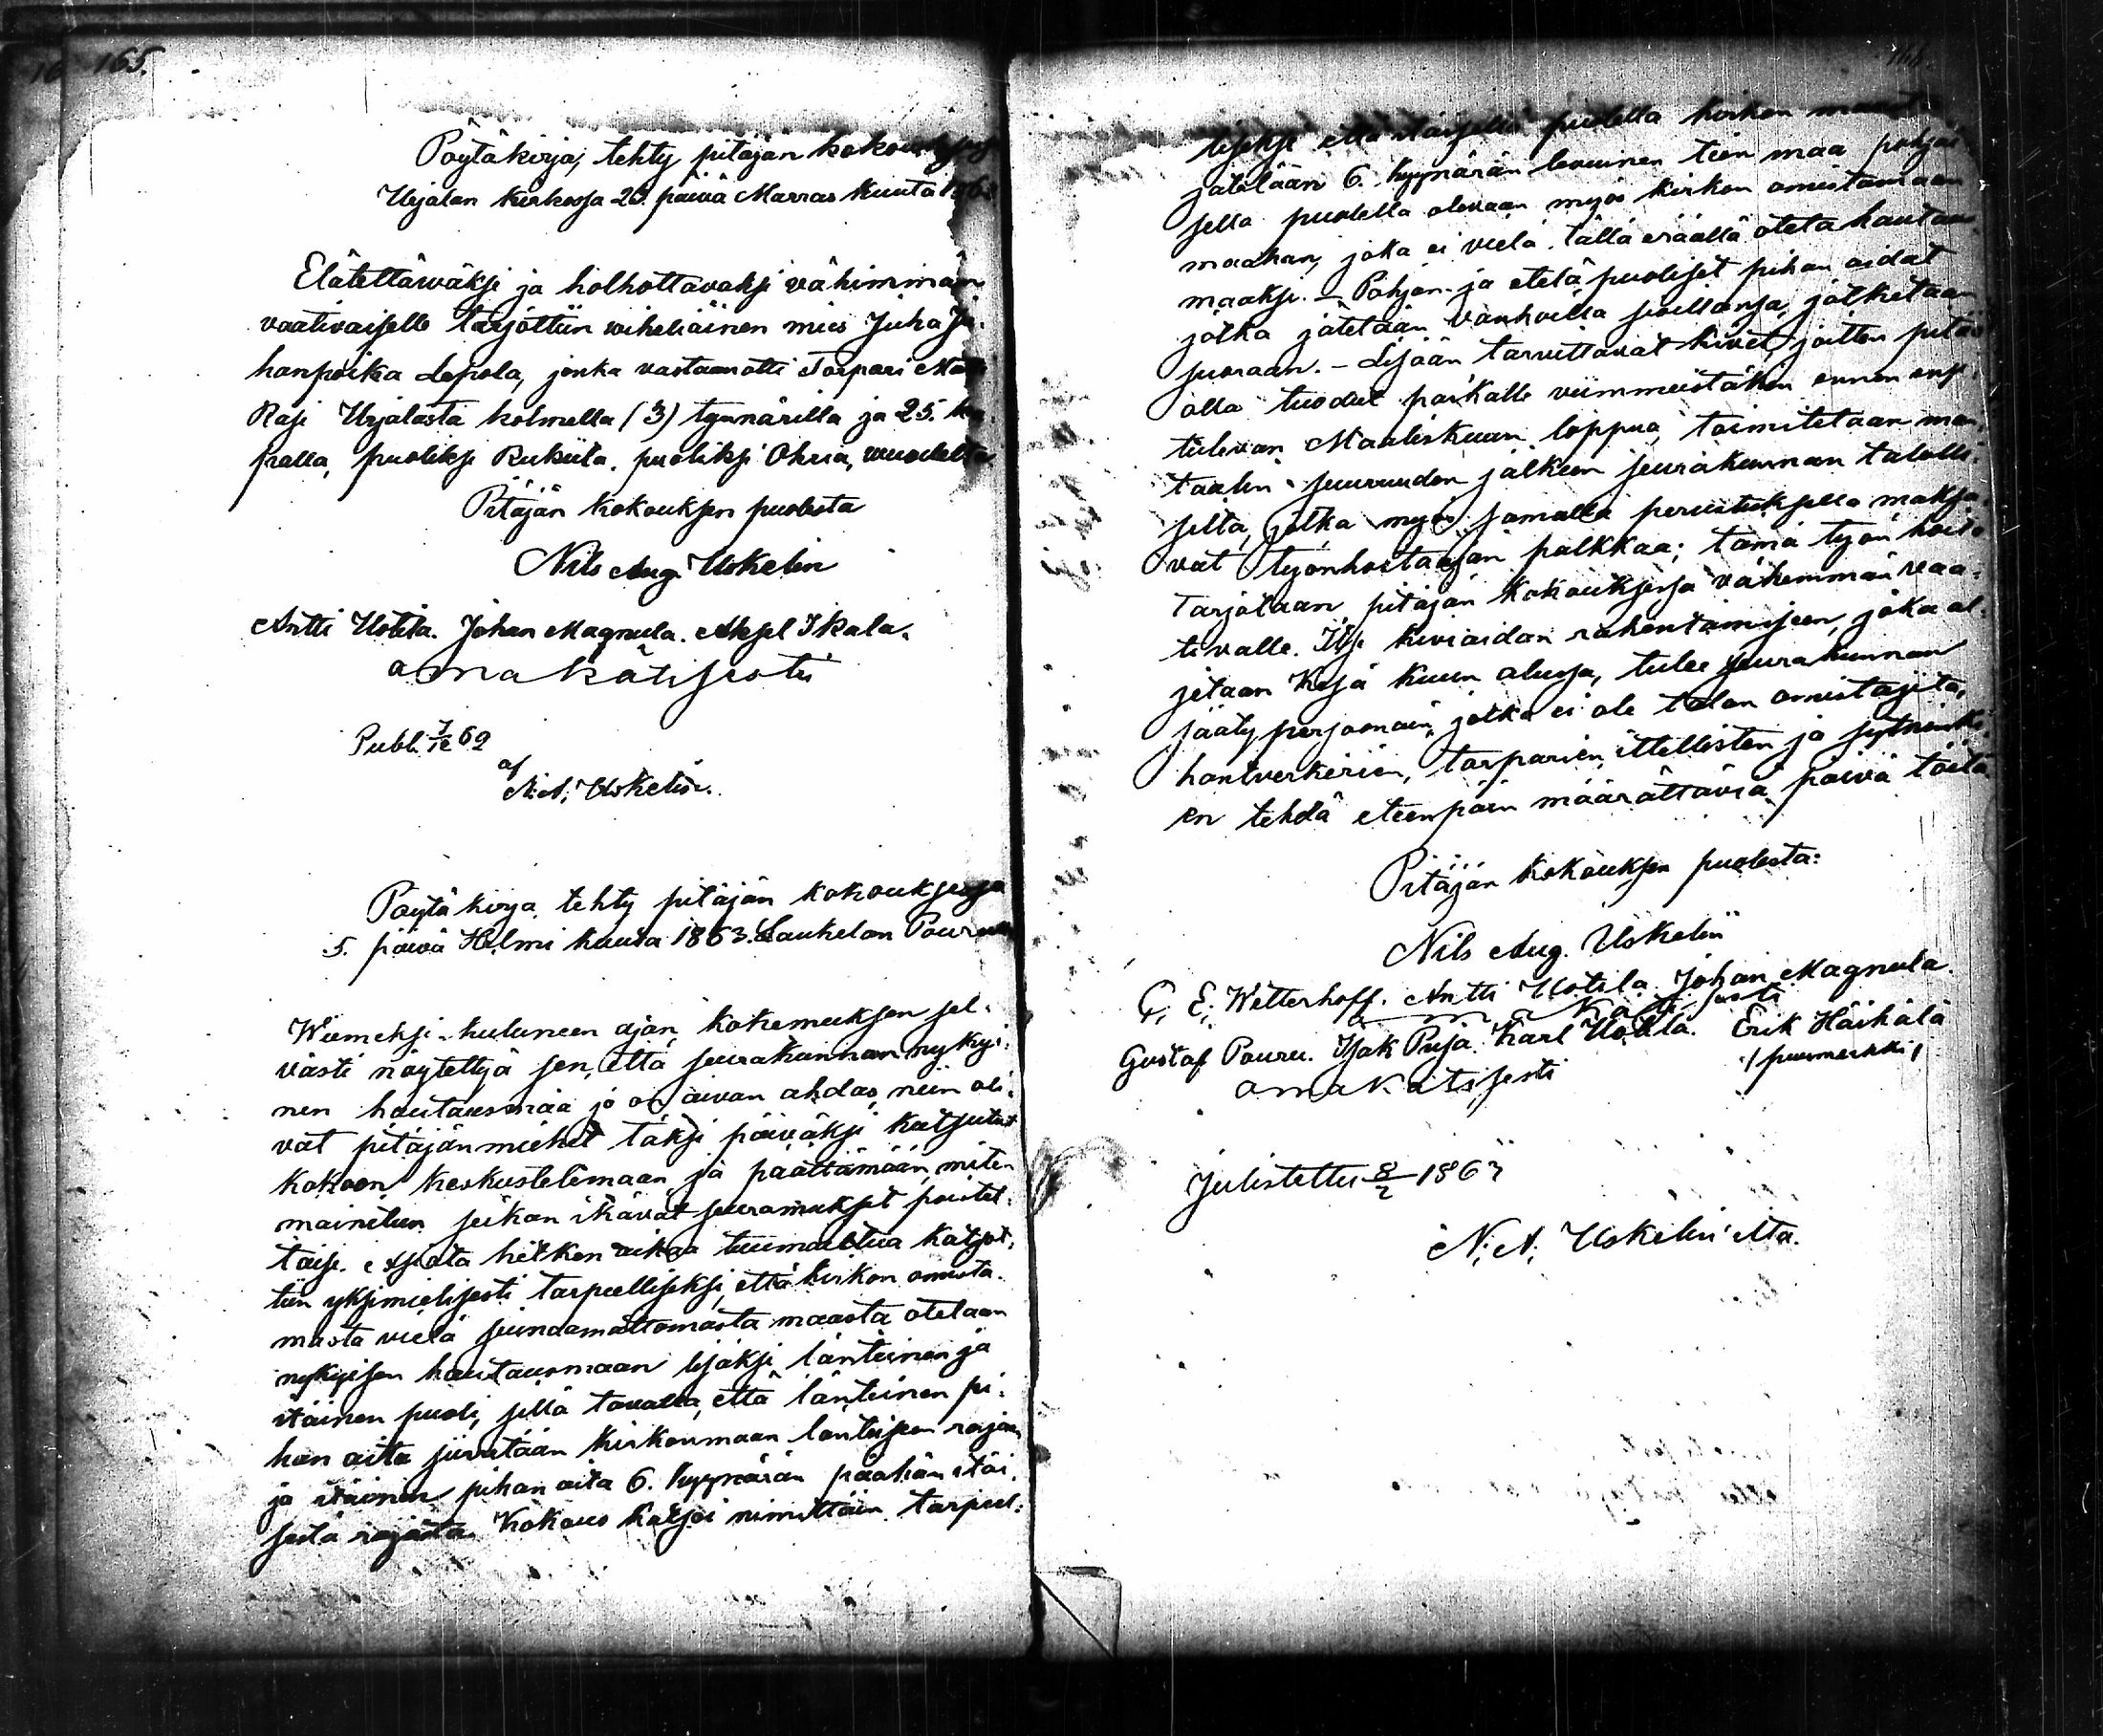 165.
Pöytäkirja, tehty pitäjän kokouksessa
Urjalan kirkossa 23. päivä Marras kuuta
Elätettäwäksi ja holhottavaksi vähimmän
vaativaiselle tarjottiin wiheliäinen mies Juha Ju-
hanpoika Lepola, jonka vastaanotti Torpari Matti
Rasi Urjalasta kolmella (3) tynnärillä ja 25. ka-
palla, puoliksi Rukiita, puoliksi Ohria, wuodelta
Pitäjän kokouksen puolesta
Nils Aug. Uskelin
Antti Uotila. Johan Magnula. Aksel Ikala.
omakätisesti
Publ. 7/12 62
af
N. A. Uskelin.
Pöytäkirja, tehty pitäjän kokouksessa
5. päivä Helmi kuuta 1863. Laukelan Pourussa
Wiimeksi kuluneen ajan kokemuksen sel-
västi näytettyä sen, että seurakunnan nykyi-
nen hautausmaa jo on aivan ahdas, niin oli-
vat pitäjänmiehet täksi päiväksi kutsutut
kokoon keskustelemaan ja päättämään, miten
mainitun seikan ikävät seuramukset poistet-
taisi. Asiata hetken aikaa tuumailtua katsot-
tiin yksimielisesti tarpeelliseksi, että kirkon omista-
masta vielä siunaamattomasta maasta otetaan
nykyisen hautausmaan lisäksi läntinen ja
itäinen puoli, sillä tavalla, että läntinen pi-
han aita siirretään kirkonmaan läntiseen rajaan
ja itäinen pihan aita 6. kyynärän päähän itäi-
sestä rajasta. Kokous katsoi nimittäin tarpeel-
liseksi että itäisellä puolella kirkon maata
jätetään 6. kyynärän levuinen tien maa pohjoi-
sella puolella olevaan myös kirkon omistamaan
maahan, joka ei vielä tällä erällä oteta hautaus-
maaksi. – Pohjan- ja eteläpuoliset pihan aidat
jotka jätetään vanhoilla sioillansa, jatketaan
suoraan. – Lisään tarvittavat kivet, joitten pitää
olla tuodut paikalle viimmeistäkin ennen ensi-
tulevan Maaliskuun loppua, toimitetaan man-
taalin suuruuden jälkeen seurakunnan taloilli-
silta, jotka myös samalla perustuksella maksa-
vat työnhoitaajan palkkaa; tämä työn hoito
tarjotaan pitäjän kokouksessa vähemmän vaa-
tivalle. Itse kiviaidan rakentamiseen, joka al-
jetaan Kesä kuun alussa, tulee seurakunnan
sääty persoonain, jotka ei ole talon omistajita,
hantverkerien, torparien, ittellisten ja
en tehdä eteenpäin määrättäviä päivä töitä
Pitäjän kokouksen puolesta:
Nils Aug. Uskelin
G. E. Wetterhoff. Antti Uotila. Johan Magnula.
omakätisesti
Gustaf Pouru. Isak Puja. Karl Uotila. Erik Häihälä
omakätisesti (puumerkki)
Julistettu 8/2 1863
N. A. Uskelin'ilta.